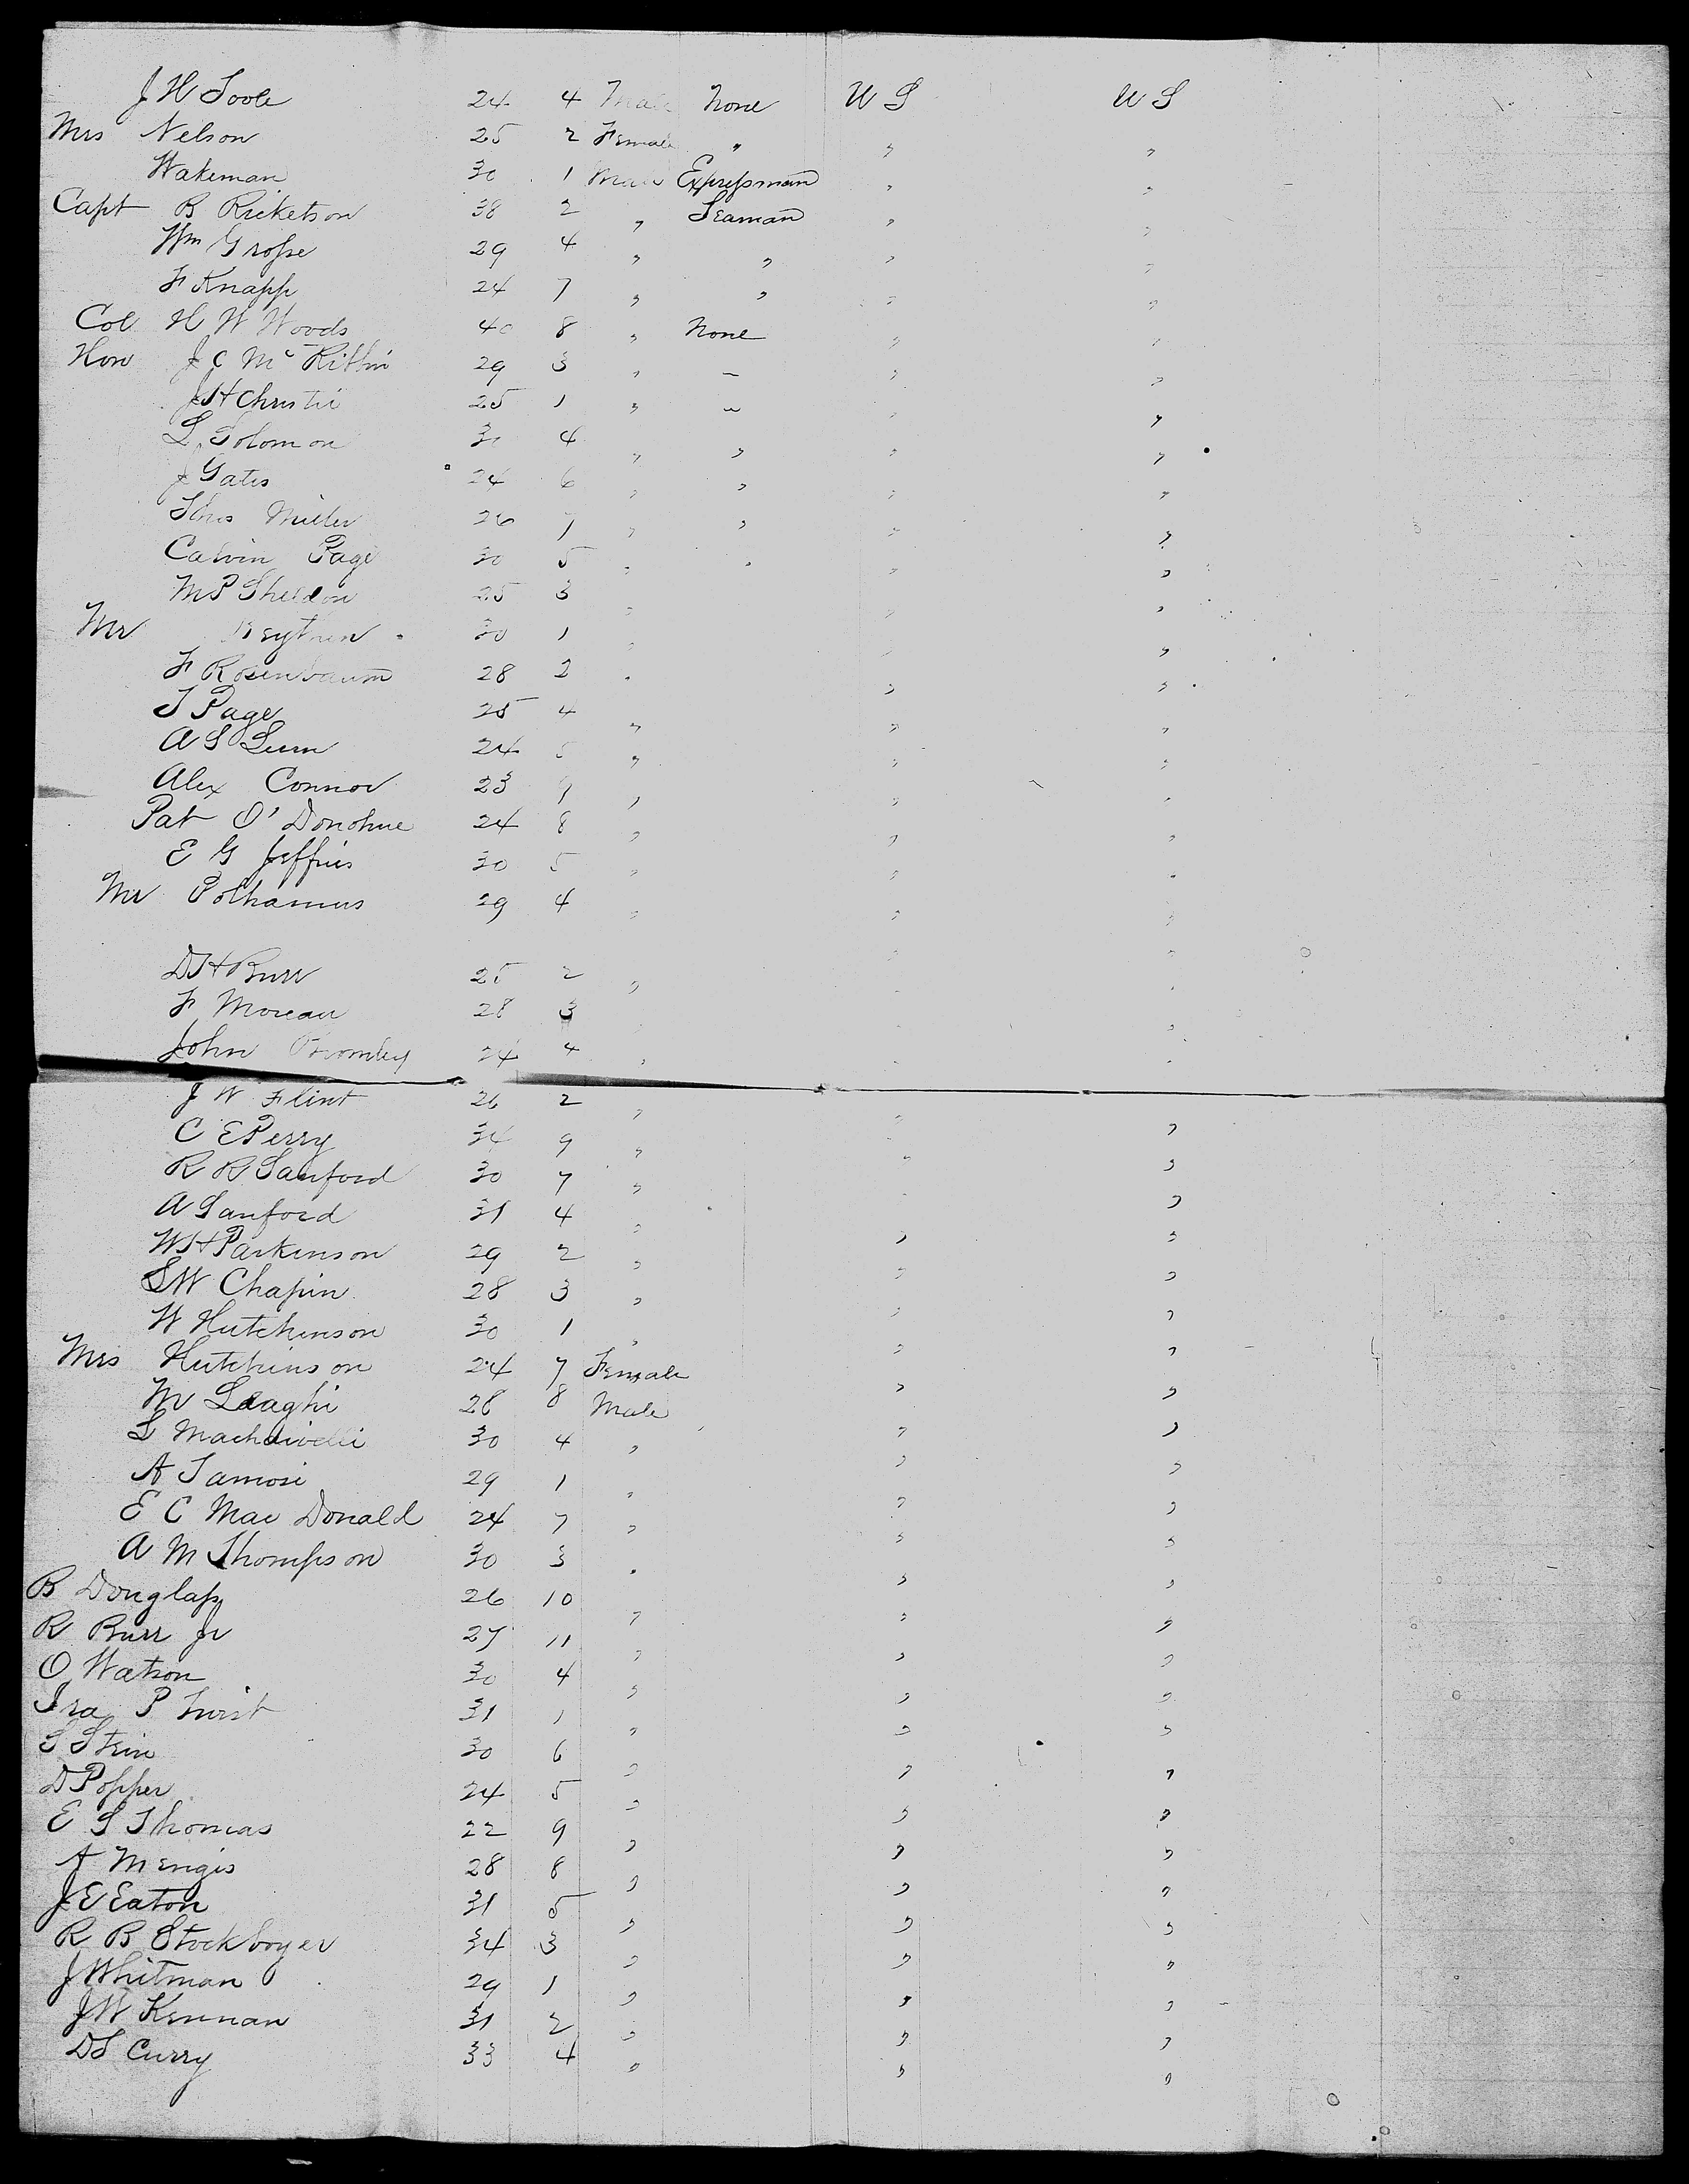 J H Toole 24 4 Male None U S U S
Mrs Nelson 25 2 Female " " "
Wakeman 30 1 Male Expressman " "
Capt B Ricketson 38 2 " Seaman " "
Wm Grosse 29 4 " " " "
F Knapp 24 7 " " " "
Col H W Woods 40 8 " None " "
Hon J C McKibbin 29 3 " – " "
J H Christie 25 1 " " " "
L. Solomon 30 4 " " " "
J Gates 24 6 " " " "
Thos Miller 26 7 " " " "
Calvin Page 30 5 " " " "
M P Sheldon 25 3 " " "
Mr 30 1 " " "
F Rosenbaum 28 2 " " "
T Page 25 4 " " "
A S Lum 24 5 " " "
Alex Connor 23 9 " " "
Pat O'Donohue 24 8 " " "
E G Jeffries 30 5 " " "
Mr Polhamus 29 4 " " "
D H Burr 25 2 " " "
F Moreau 28 3 " " "
John Bromley 24 4 " " "
J W Flint 26 2 " " "
C E Perry 34 9 " " "
R R Sanford 30 7 " " "
A Sanford 31 4 " " "
W H Parkinson 29 2 " " "
S W Chapin 28 3 " " "
W Hutchinson 30 1 " " "
Mrs Hutchinson 24 7 Female " "
M Laaghi 28 8 Male " "
L Machdivelli 30 4 " " "
A Tamosi 29 1 " " "
E C Mac Donald 24 7 " " "
A M Thompson 30 3 " " "
B Douglass 26 10 " " "
R Burr Jr 27 11 " " "
O Watson 30 4 " " "
Ira P 31 1 " " "
S Stein 30 6 " " "
D Popper 24 5 " " "
E S Thomas 22 9 " " "
A Mengis 28 8 " " "
J E Eaton 31 5 " " "
R B Stockboyer 34 3 " " "
J Whitman 29 1 " " "
J W Kennan 31 2 " " "
D S Curry 33 4 " " "